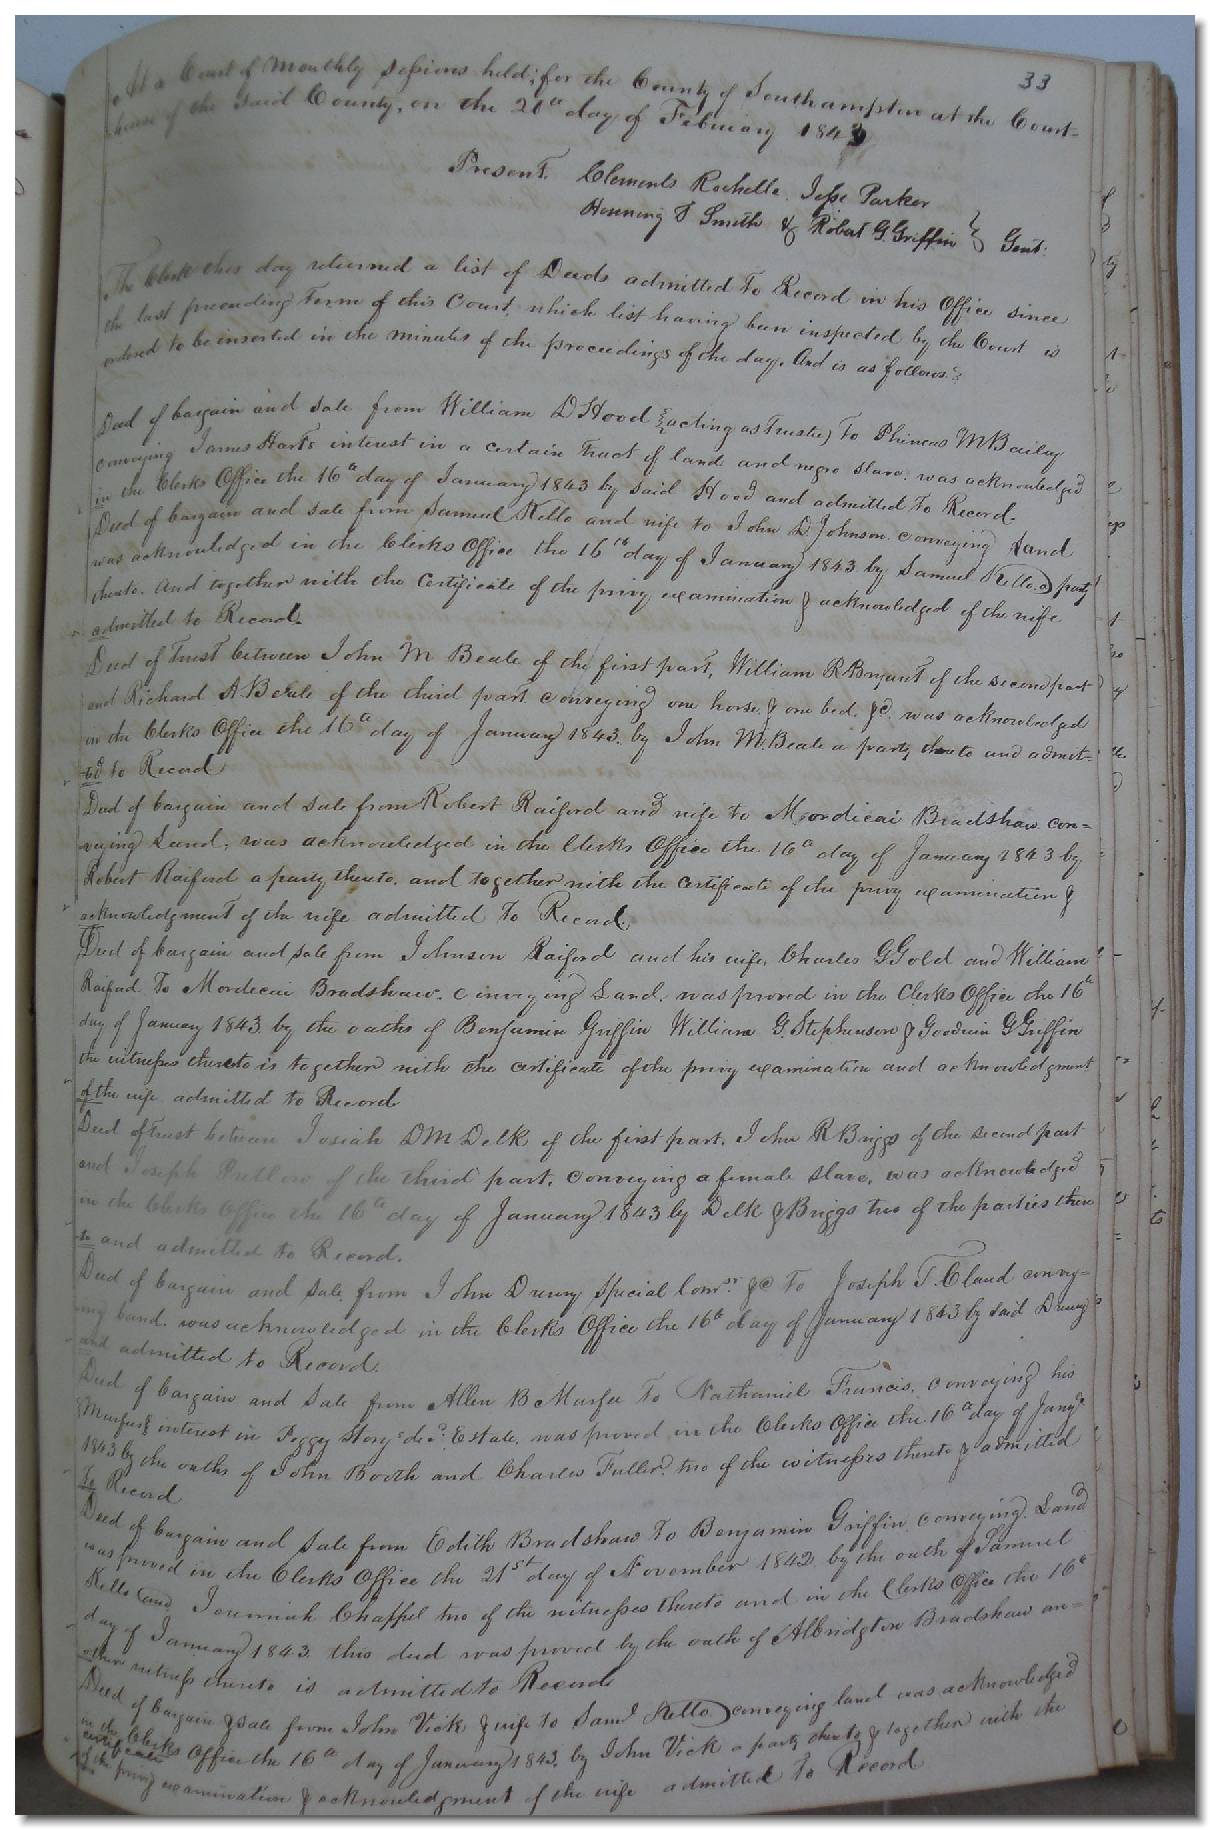 33
At a Court of Monthly sessions held; for the County of Southampton at the Court=
house of the said County, on the 20th day of February 1843
Present. Clements Rochelle. Jesse Parker
Henning T Smith & Robert G. Griffin } Gent:
The Clerk this day returned a list of Deeds admitted to Record in his Office since
the last preceeding Term of this Court, which list having been inspected by the Court is
ordered to be inserted in the minutes of the proceedings of the day. And is as follows:
Deed of bargain and sale from William D Hood (acting as Trustee) to Phineas M Bailey
conveying James Harts interest in a certain tract of land and negro slave. was acknowledged
in the Clerks Office the 16th day of January 1843 by said Hood and admitted to Record.
Deed of bargain and sale from Samuel Kello and wife to John D. Johnson conveying land
was acknowledged in the Clerks Office the 16th day of January 1843 by Samuel Kello a party
thereto. And together with the Certificate of the privy examination & acknowledged of the wife
admitted to Record.
Deed of Trust between John M Beale of the first part, William R Bryant of the second part
and Richard A Beale of the third part conveying one horse. & one bed. &c. was acknowledged
in the Clerks Office the 16th day of January 1843. by John M. Beale a party thereto and admit=
ted to Record
Deed of bargain and sale from Robert Raiford and wife to Mordicai Bradshaw con=
veying Land, was acknowledged in the Clerks Office the 16th day of January 1843 by
Robert Raiford a party thereto. and together with the certificate of the privy examination &
acknowledgment of the wife admitted to Record.
Deed of bargain and sale from Johnson Raiford and his wife, Charles G Gold and William
Raiford To Mordecai Bradshaw. conveying Land. was proved in the Clerks Office the 16th
day of January 1843. by the oaths of Benjamin Griffin William G. Stephenson & Goodwin G Griffin
the witnesses thereto is together with the certificate of the privy examination and acknowledgment
of the wife admitted to Record
Deed of Trust between Josiah D M Delk of the first part. John R Briggs of the second part
and Joseph Pretlow of the third part, conveying a female slave, was acknowledged
in the Clerks Office the 16th day of January 1843 by Delk & Briggs two of the parties there
to and admitted to Record.
Deed of bargain and sale from John Drewry special Comr. &c To Joseph T. Claud convey=
ing land. was acknowledged in the Clerks Office the 16th day of January 1843 by said Drewry
and admitted to Record.
Deed of bargain and sale from Allen B Murfee To Nathaniel Francis. conveying his
Murfees interest in Peggy Storys decd. Estate. was proved in the Clerks Office the 16th day of Jany
1843 by the oaths of John Booth and Charles Fuller. two of the witnesses thereto & admitted
to Record
Deed of bargain and sale from Edith Bradshaw to Benjamin Griffin conveying Land
was proved in the Clerks Office the 21st day of November 1842 by the oath of Samuel
Kello and Jeremiah Chappel two of the witnesses thereto and in the Clerks Office the 16th
day of January 1843. this deed was proved by the oath of Albridgton Bradshaw an=
other witness thereto is admitted to Record
Deed of bargain & sale from John Vick & wife to Saml Kello conveying land was acknowledged
in the Clerks Office the 16th day of January 1843. by John Vick a party thereto & together with the
certificate
of the privy examination & acknowledgment of the wife admitted to Record